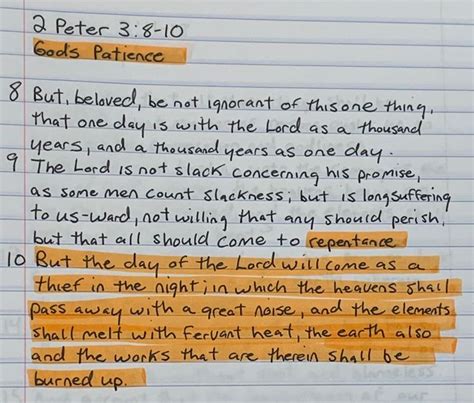 2 Peter 3:8-10
God's Patience
8 But, beloved, be not ignorant of this one thing,
that one day is with the Lord as a thousand
years, and a thousand years as one day.
9 The Lord is not slack concerning his promise,
as some men count slackness; but is longsuffering
to us-ward, not willing that any should perish,
but that all should come to repentance.
10 But the day of the Lord will come as a
thief in the night; in which the heavens shall
pass away with a great noise, and the elements
shall melt with fervant heat, the earth also
and the works that are therein shall be
burned up.